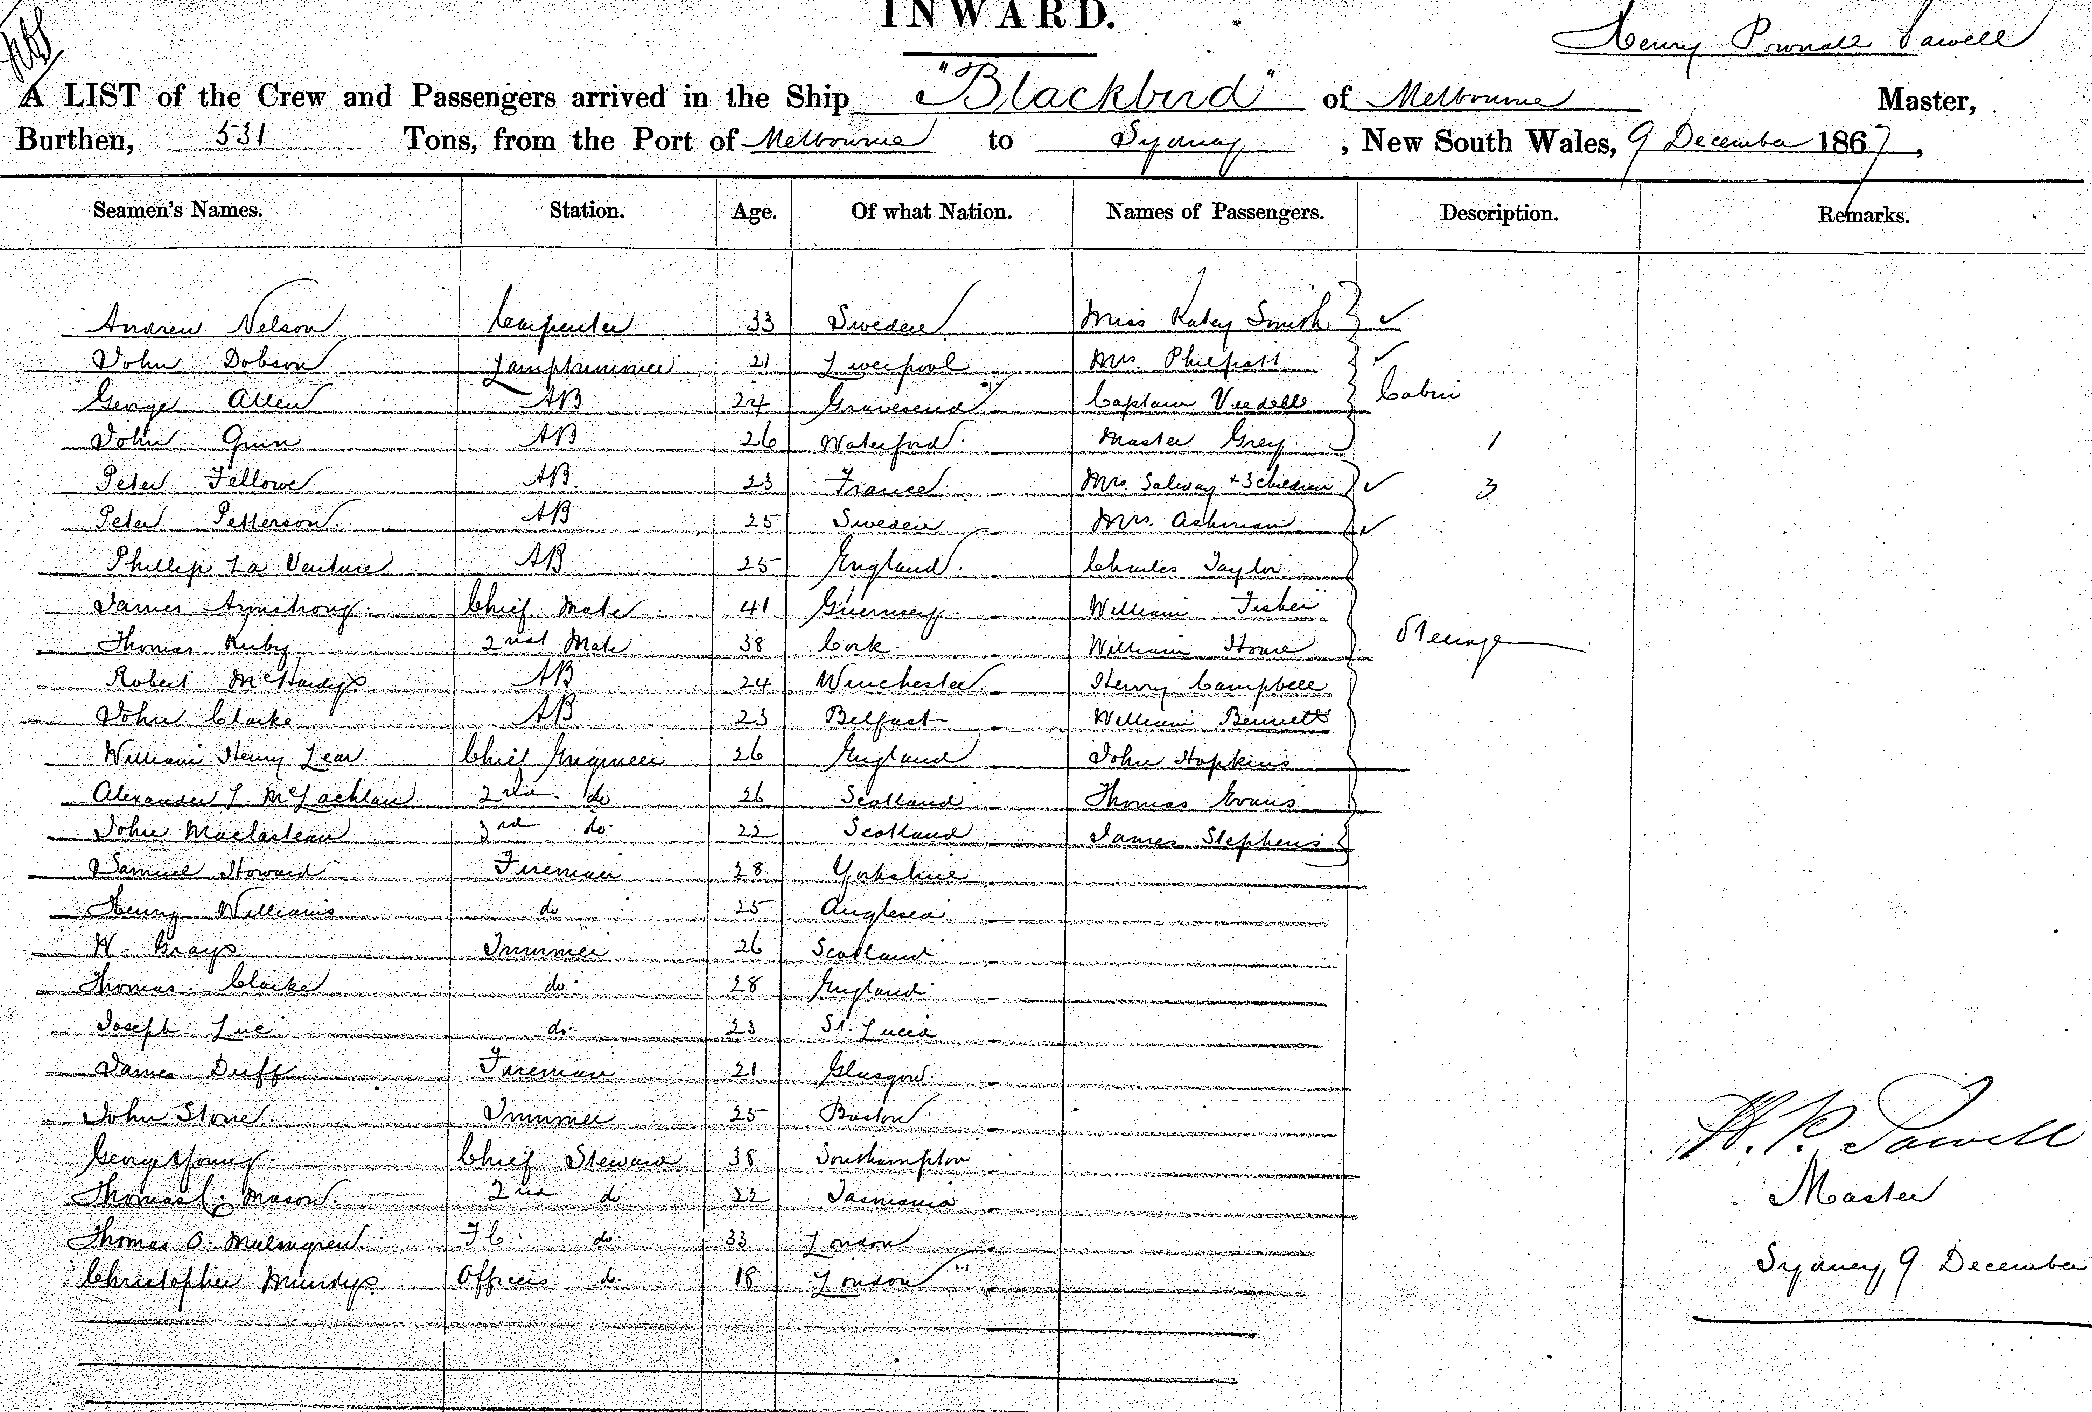 INWARD.
Henry Pownall Sawell
A LIST of the Crew and Passengers arrived in the Ship "Blackbird" of Melbourne Master,
Burthen, 531 Tons, from the Port of Melbourne to Sydney, New South Wales, 9 December 1867,
Seamen's Names. Station. Age. Of what Nation. Names of Passengers. Description. Remarks.
Andrew Nelson Carpenter 33 Sweden Miss Katey Smith
John Dobson Lamptrimmer 21 Liverpool Mrs Philpott
George Allen AB 24 Gravesend Captain Cabin
John Quin AB 26 Waterford Master Grey 1
Peter Fellowe AB 23 France Mrs. Salway + 3 children 3
Peter Petterson AB 25 Sweden Mrs. Ackman
Phillip La Venture AB 25 England Charles Taylor
James Armstrong Chief Mate 41 Guernsey William Fisher
Thomas Kirby 2nd Mate 38 Cork William Howe Steerage
Robert McHardy AB 24 Winchester Henry Campbell
John Clarke AB 23 Belfast William Bennett
William Henry Lear Chief Engineer 26 England John Hopkins
Alexander L McLachlan 2nd do 26 Scotland Thomas Evans
John 3rd do 22 Scotland James Stephens
Samuel Howard Fireman 28 Yorkshire
Henry Williams do 25 Anglesea
W. Grays Trimmer 26 Scotland
Thomas Clarke do 28 England
Joseph Luc do 23 St. Lucia
James Duff Fireman 21 Glasgow
John Stone Trimmer 25 Boston
George Young Chief Steward 38 Southampton
Thomas C. Mason 2nd do 22 Tasmania
Thomas O. Malmgren F C. do 33 London
Christopher Mundy Officers do 18 London
H. P. Sawell
Master
Sydney, 9 December